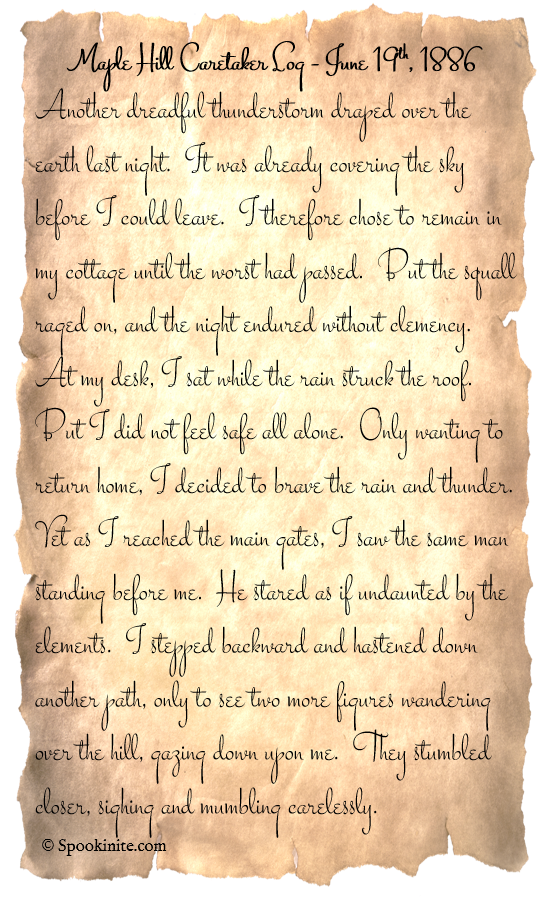 Maple Hill Caretaker Log - June 19th, 1886
Another dreadful thunderstorm draped over the
earth last night. It was already covering the sky
before I could leave. I therefore chose to remain in
my cottage until the worst had passed. But the squall
raged on, and the night endured without clemency.
At my desk, I sat while the rain struck the roof.
But I did not feel safe all alone. Only wanting to
return home, I decided to brave the rain and thunder.
Yet as I reached the main gates, I saw the same man
standing before me. He stared as if undaunted by the
elements. I stepped backward and hastened down
another path, only to see two more figures wandering
over the hill, gazing down upon me. They stumbled
closer, sighing and mumbling carelessly.
© Spookinite.com